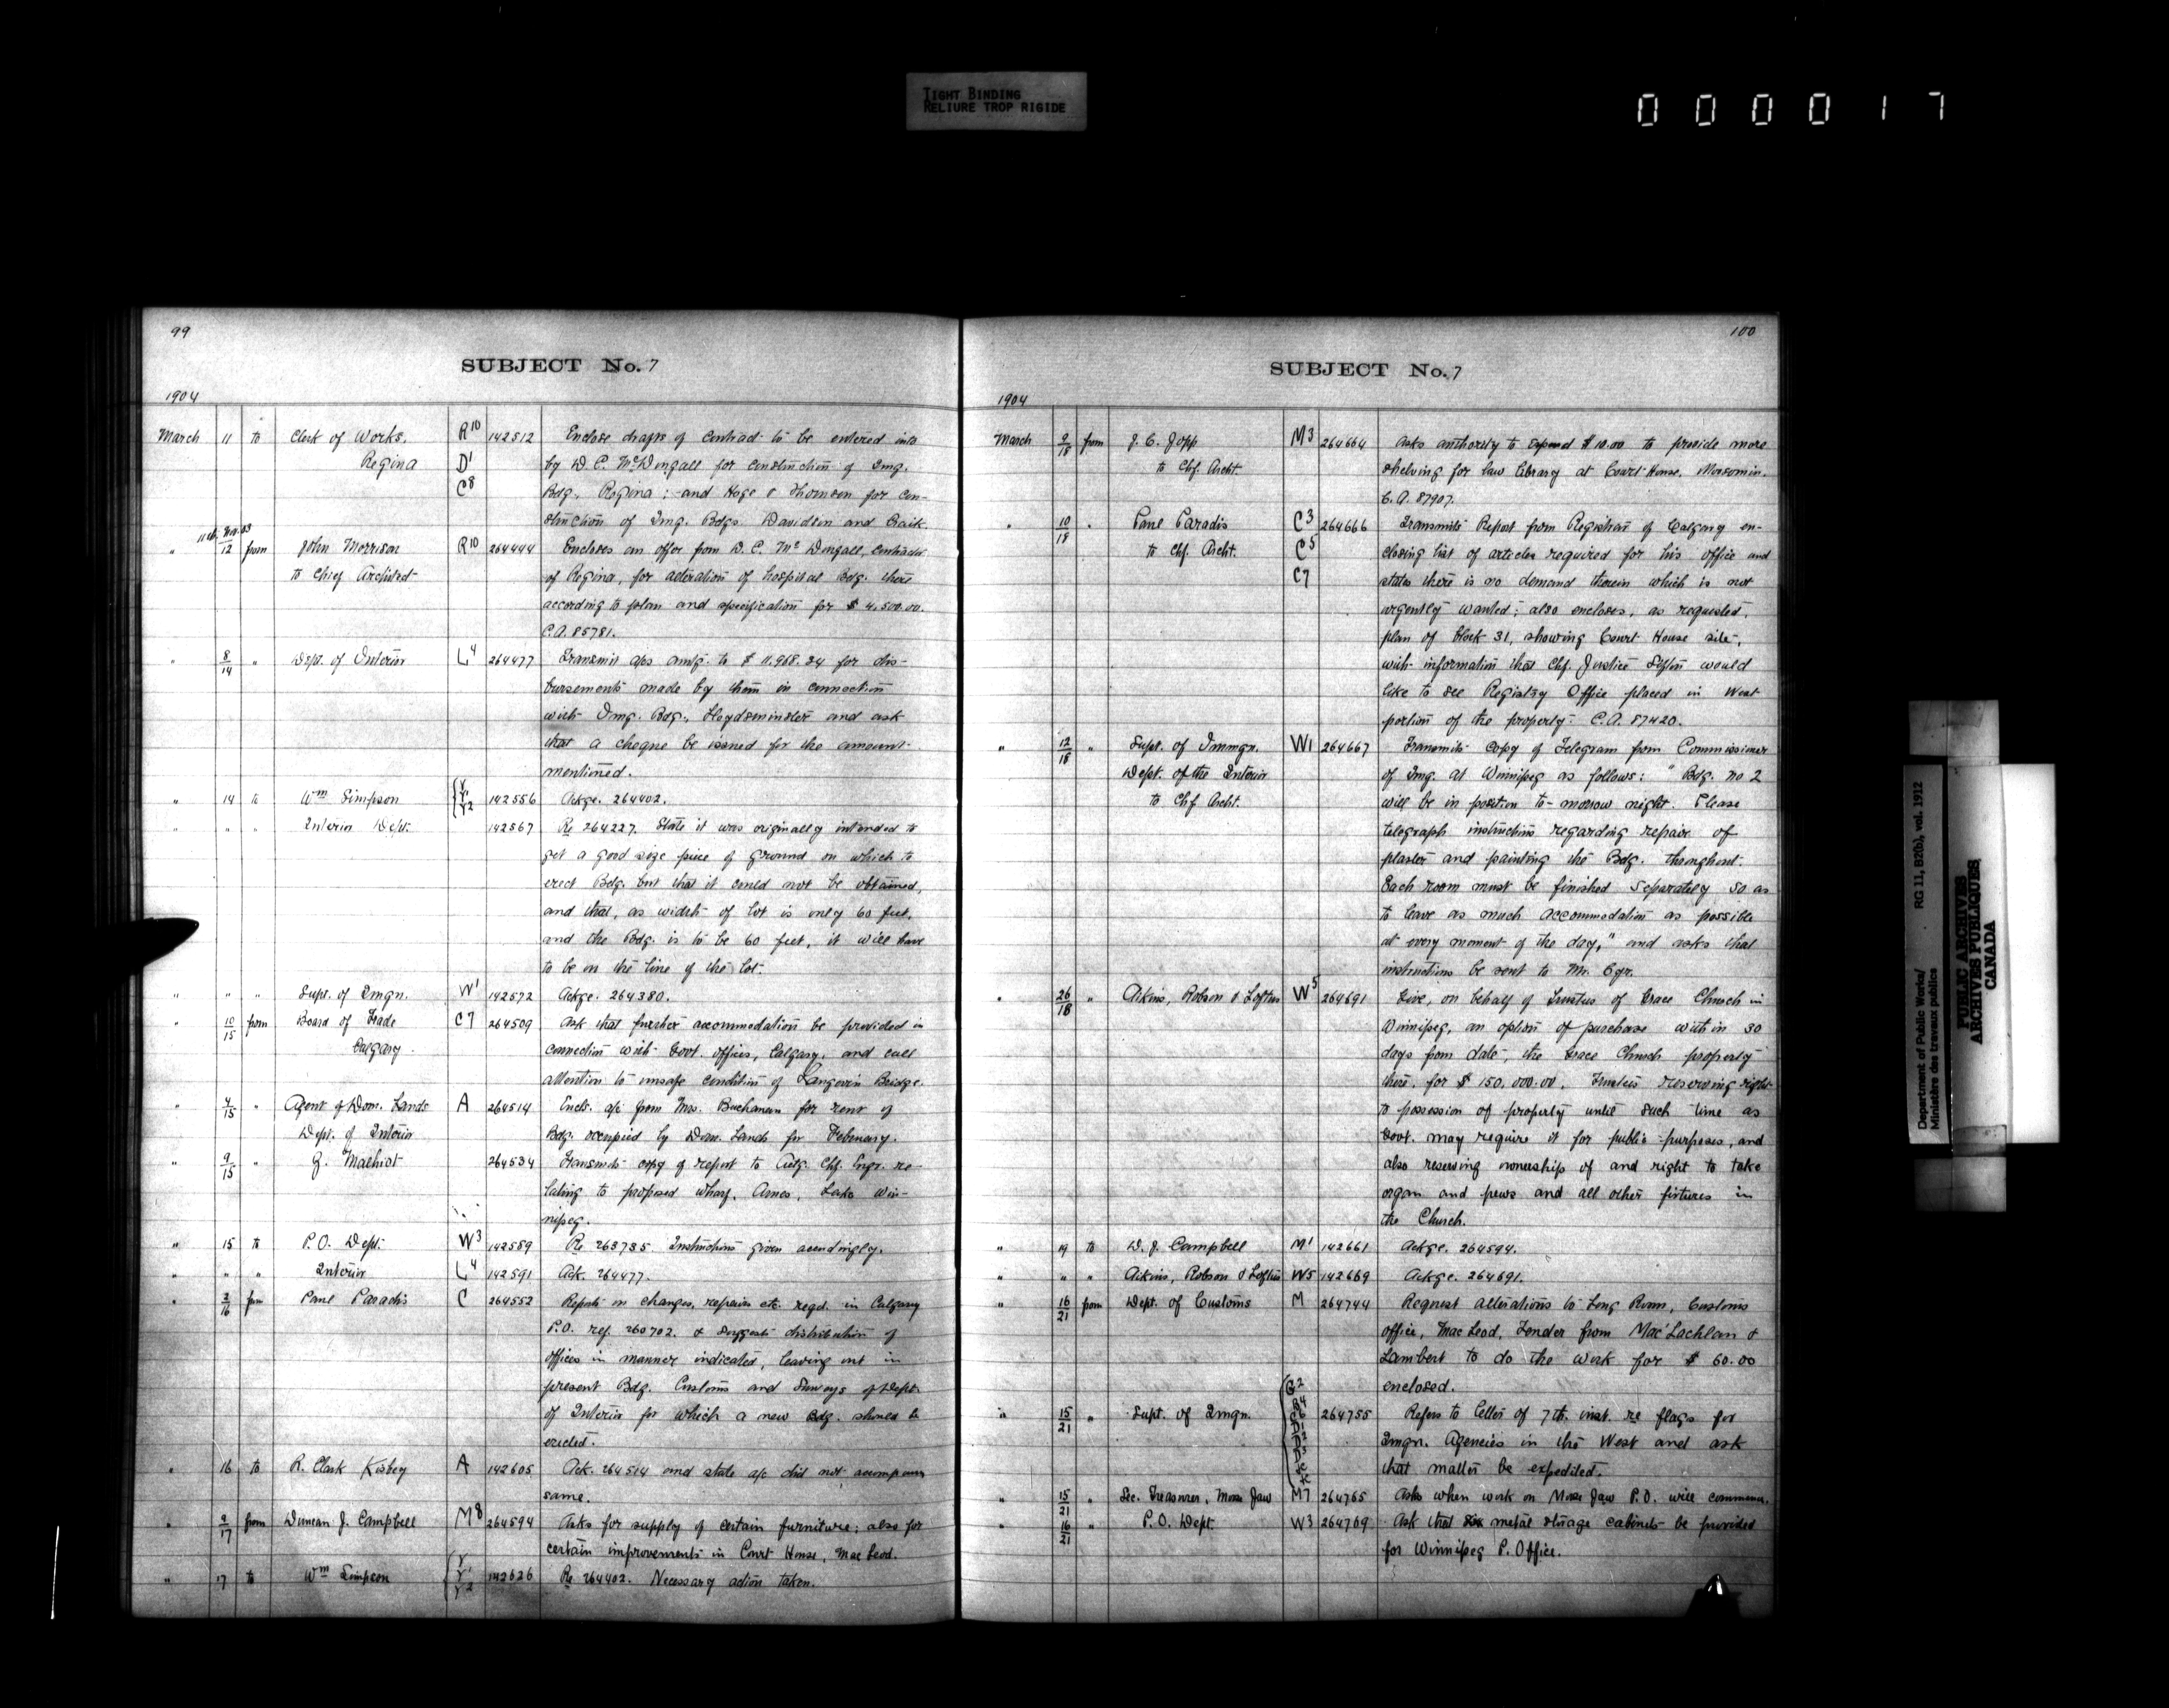 TIGHT BINDING
RELIURE TROP RIGIDE
000017
99
SUBJECT No. 7
1904
March 11 to Clerk of Works. R10 142512 Enclose drafts of contract to be entered into
Regina D1 by D. C. McDougall for construction of Img.
C8 Bdg. Regina; and Hoge & Thomson for con-
struction of Img. Bdgs. Davidson and Craik.
11th Nov. 03
" 12 from John Morrison R10 264444 Encloses an offer from D. C. McDougall, contractor
to Chief Architect of Regina, for alteration of hospital Bdg. there
according to plan and specification for $4,500.00.
C.A. 85781.
" 8/14 " Dept. of Interior L4 264477 Transmit a/cs amtg. to $11,968.24 for dis-
bursements made by them in connection
with Img. Bdg., Lloydsminster and ask
that a cheque be issued for the amount
mentioned.
" 14 to Wm Simpson Y Y1 Y2 142556 Ackge. 264402.
" " " Interior Dept. 142567 Re 264227. State it was originally intended to
get a good size piece of ground on which to
erect Bdg. but that it could not be obtained,
and that, as width of lot is only 60 feet,
and the Bdg. is to be 60 feet, it will have
to be on the line of the lot.
" " " Supt. of Imgn. W1 142572 Ackge. 264380.
" 10/15 from Board of Trade C7 264509 Ask that further accommodation be provided in
Calgary. connection with Govt. offices, Calgary, and call
attention to unsafe condition of Langevin Bridge.
" 4/15 " Agent of Dom. Lands A 264514 Encls. a/c from Mrs. Buchanan for rent of
Dept. of Interior Bdg. occupied by Dom. Lands for February.
" 9/15 " Z. Malhiot 264534 Transmits copy of report to Actg. Chf. Engr. re-
lating to proposed wharf, Arnes, Lake Win-
nipeg.
" 15 to P.O. Dept. W3 142589 Re 263735. Instructions given accordingly.
" " " Interior L4 142591 Ack. 264477.
" 2/16 from Paul Paradis C 264552 Reports on changes, repairs etc. reqd. in Calgary
P.O. ref. 260702. & suggests distribution of
offices in manner indicated, leaving out in
present Bdg. Customs and Surveys of Dept.
of Interior for which a new Bdg. should be
erected.
" 16 to R. Clark Kisbey A 142605 Ack. 264514 and state a/c did not accompany
same.
" 9/17 from Duncan J. Campbell M8 264594 Asks for supply of certain furniture; also for
certain improvements in Court House, MacLeod.
" 17 to Wm Simpson Y Y1 Y2 142626 Re 264402. Necessary action taken.
100
SUBJECT No. 7
1904
March 9/18 from J. C. Jopp M3 264664 Asks authority to expend $10.00 to provide more
to Chf. Archt. shelving for law library at Court House, Moosomin.
C.A. 87907.
" 10/18 " Paul Paradis C3 264666 Transmits Report from Registrar of Calgary en-
to Chf. Archt. C5 closing list of articles required for his office and
C7 states there is no demand therein which is not
urgently wanted; also encloses, as requested,
plan of block 31, showing Court House site,
with information that Chf. Justice Sifton would
like to see Registry Office placed in West
portion of the property. C.A. 87420.
" 12/18 " Supt. of Immgn. W1 264667 Transmits copy of Telegram from Commissioner
Dept. of the Interior of Img. at Winnipeg as follows: "Bdg. no 2
to Chf Archt. will be in position to-morrow night. Please
telegraph instructions regarding repair of
plaster and painting the Bdg. throughout.
Each room must be finished separately so as
to leave as much accommodation as possible
at every moment of the day," and asks that
instructions be sent to Mr. Cyr.
" 26/18 " Aikins, Robson & Loftus W5 264691 Give, on behalf of Trustees of Grace Church in
Winnipeg, an option of purchase within 30
days from date, the Grace Church property
there, for $150,000.00. Trustees reserving right
to possession of property until such time as
Govt. may require it for public purposes, and
also reserving ownership of and right to take
organ and pews and all other fixtures in
the Church.
" 19 to D. J. Campbell M1 142661 Ackge. 264594.
" " " Aikins, Robson & Loftus W5 142669 Ackge. 264691.
" 16/21 from Dept. of Customs M 264744 Request alterations to Long Room, Customs
office, MacLeod, Tender from MacLachlan &
Lambert to do the work for $60.00
enclosed.
" 15/21 " Supt. of Imgn. 264755 Refers to letter of 7th. inst. re flags for
Imgn. Agencies in the West and ask
that matter be expedited.
" 15/21 " Sec. Treasurer, Moose Jaw M7 264765 Asks when work on Moose Jaw P.O. will commence.
" 16/21 " P.O. Dept. W3 264769 Ask that six metal storage cabinets be provided
for Winnipeg P. Office.
Department of Public Works/ RG 11, B2(b), vol. 1912
Ministère des travaux publics
PUBLIC ARCHIVES
ARCHIVES PUBLIQUES
CANADA